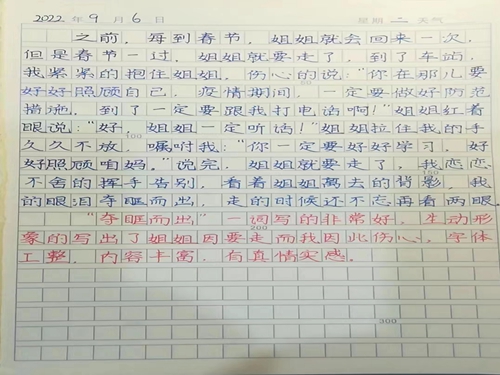 2022年9月6日 星期二 天气
之前，每到春节，姐姐就会回来一次，
但是春节一过，姐姐就要走了，到了车站，
我紧紧的抱住姐姐，伤心的说："你在那儿要
好好照顾自己，疫情期间，一定要做好防范
措施，到了一定要跟我打电话啊！"姐姐红着
眼说："好，姐姐一定听话！"姐姐拉住我的手
久久不放，嘱咐我："你一定要好好学习，好
好照顾咱妈。"说完，姐姐就要走了，我恋恋
不舍的挥手告别，看着姐姐离去的背影，我
的眼泪夺眶而出，走的时候还不忘再看两眼。
"夺眶而出"一词写的非常好，生动形
象的写出了姐姐因要走而我因此伤心，字体
工整，内容丰富，有真情实感。
100
150
200
300